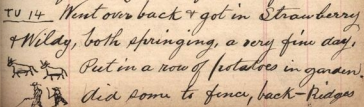 TU 14 Went over back & got in Strawberry
& Wildy, both springing, a very fine day,
Put in a row of potatoes in garden,
did some to fence, back-Ridges